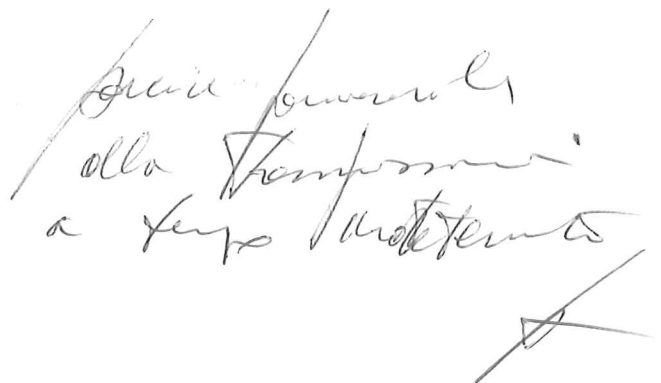 parere favorevole
alla trasformazione
a tempo indeterminato